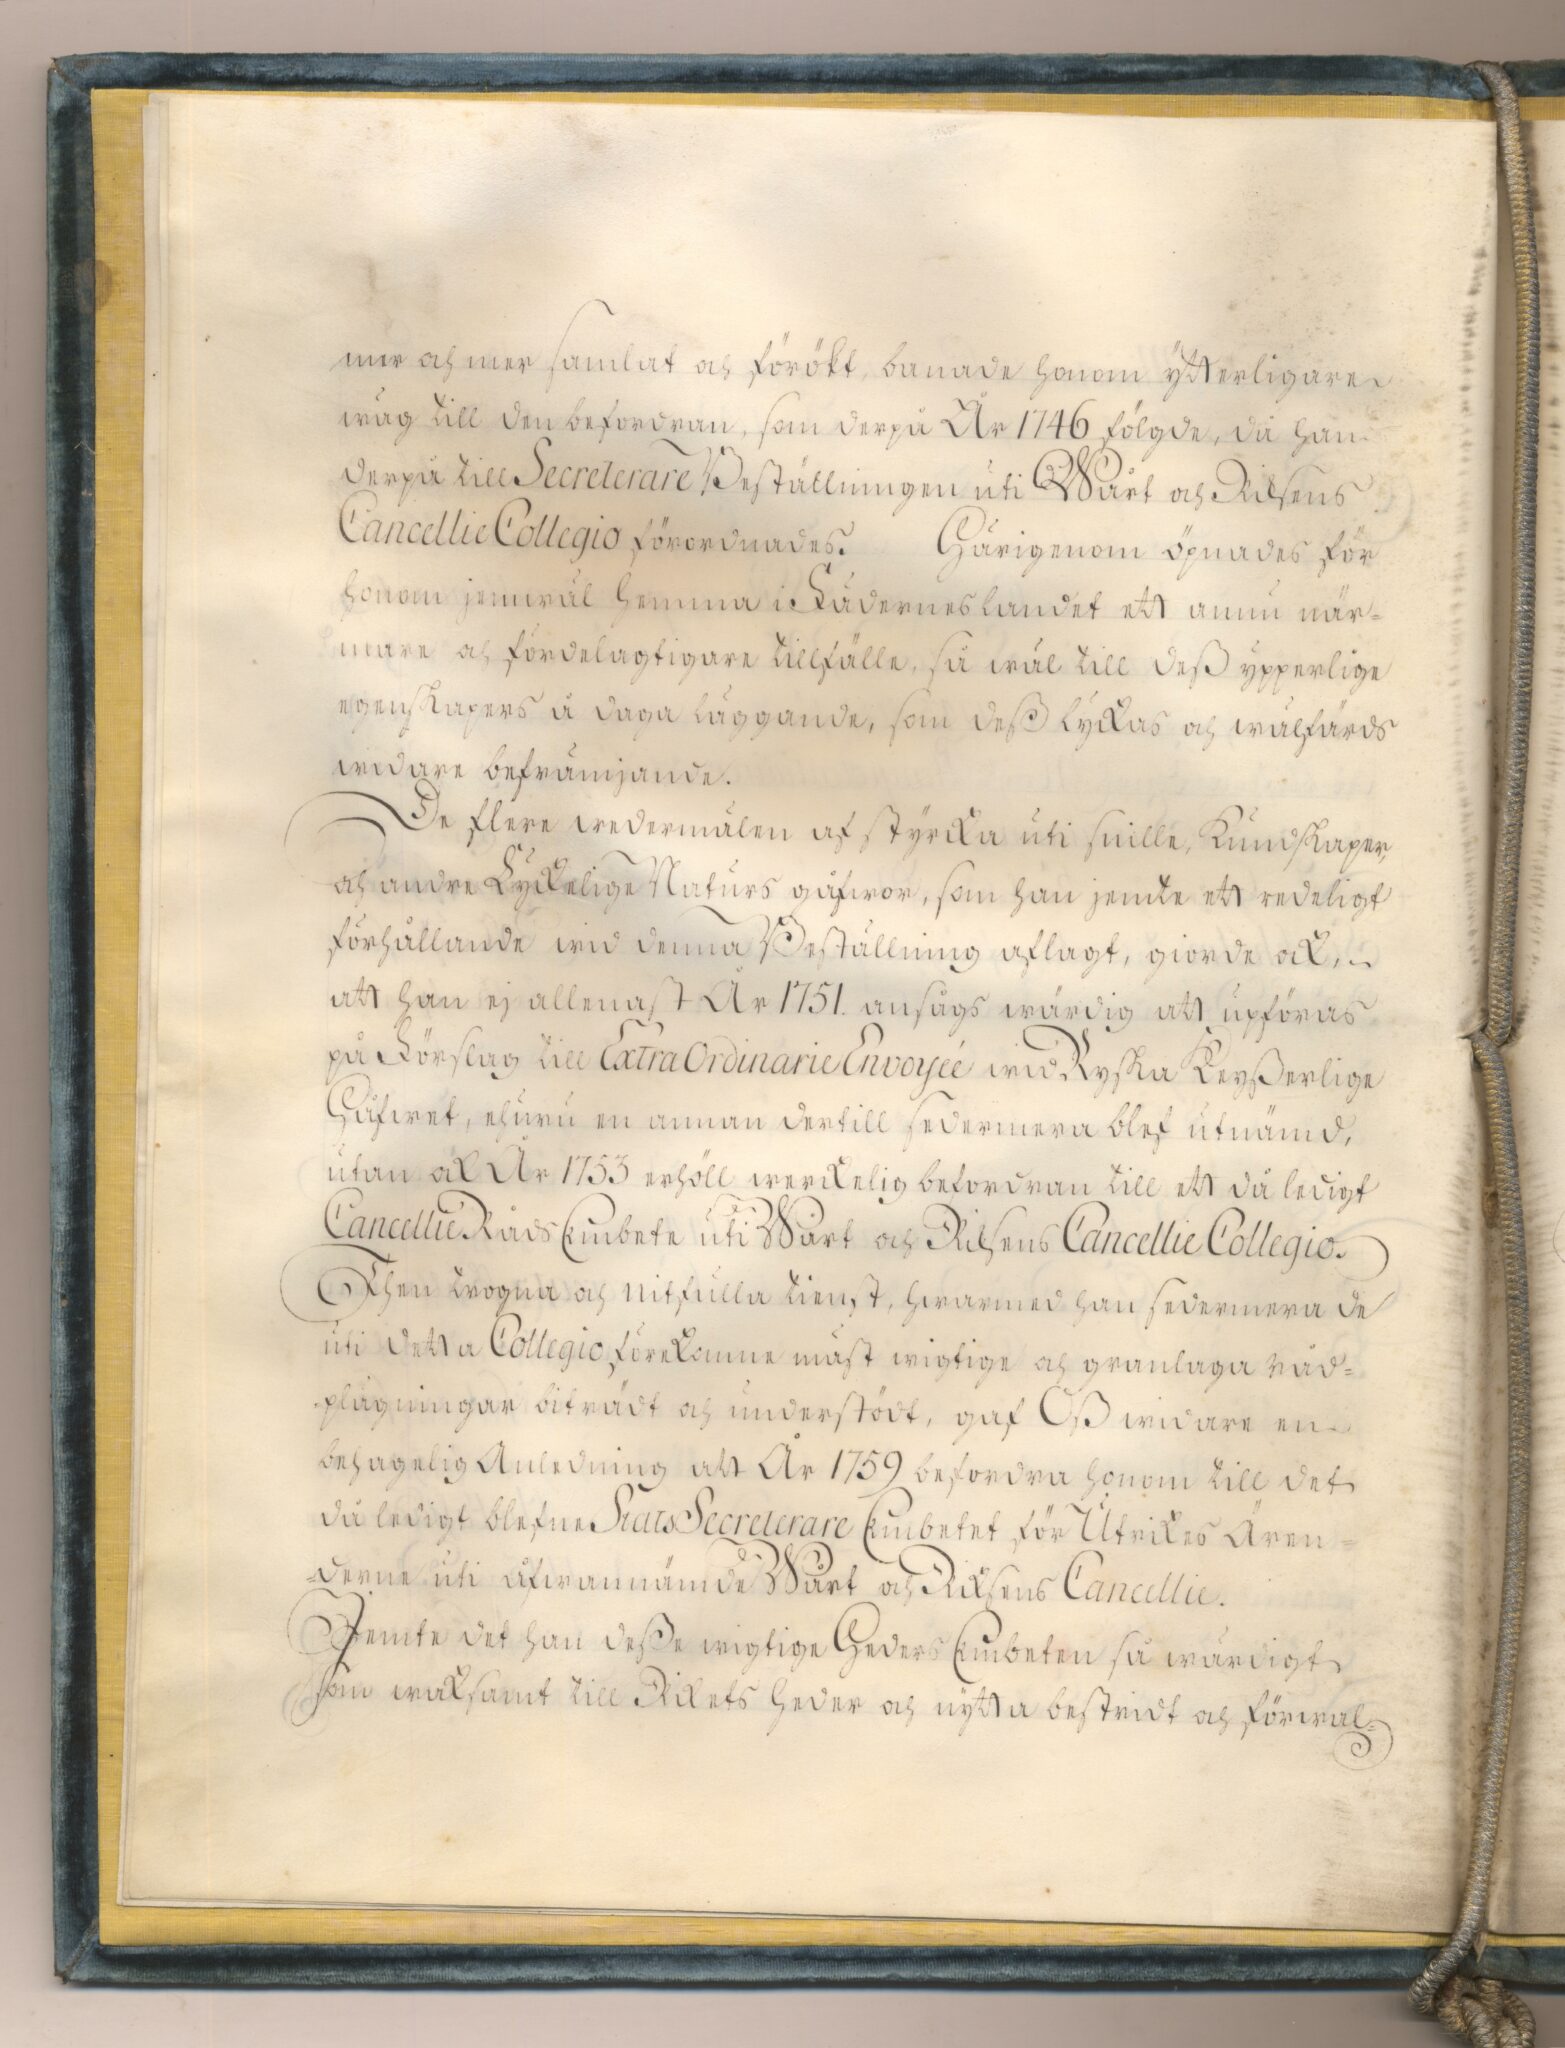 mer och mer samlat och förökt, banade honom ytterligare
wäg till den befordran, som derpå År 1746 fölgde, då han
derpå till Secreterare Beställningen uti Wårt och Riksens
Cancellie Collegio förordnades. Härigenom öpnades för
honom jemwäl hemma i Fäderneslandet ett annu när-
mare och fördelagtigare tillfälle, så wäl till deß ypperlige
egenskapers å daga läggande, som deß lyckas och wälfärds
widare befrämjande.
De flere wedermälen af styrcka uti snille, kundskaper,
och andre Lyckelige Naturs gåfwor, som han jemte ett redeligt
förhållande wid denna Beställning aflagt, giorde ock,
att han ej allenast År 1751. ansågs wärdig att upföras
på Förslag till Extra Ordinarie Envoyée wid Ryska Keyßerlige
Håfwet, ehuru en annan dertill sedermera blef utnämd,
utan ock År 1753 erhöll werckelig befordran till ett då ledigt
Cancellie Råds Embete uti Wårt och Riksens Cancellie Collegio.
Then trogna och nitfulla tienst, hwarmed han sedermera de
uti detta Collegio förekomne mäst wigtige och granlaga råd-
plägningar biträdt och understödt, gaf Oß widare en
behagelig Anledning att År 1759 befordra honom till det
då ledigt blefne Stats Secreterare Embetet för Utrikes Ären-
derne uti åfwannämde Wårt och Riksens Cancellie.
Jemte det han deße wigtige Heders Embeten så wärdigt
som waksamt till Rikets heder och nytta bestridt och förwal-